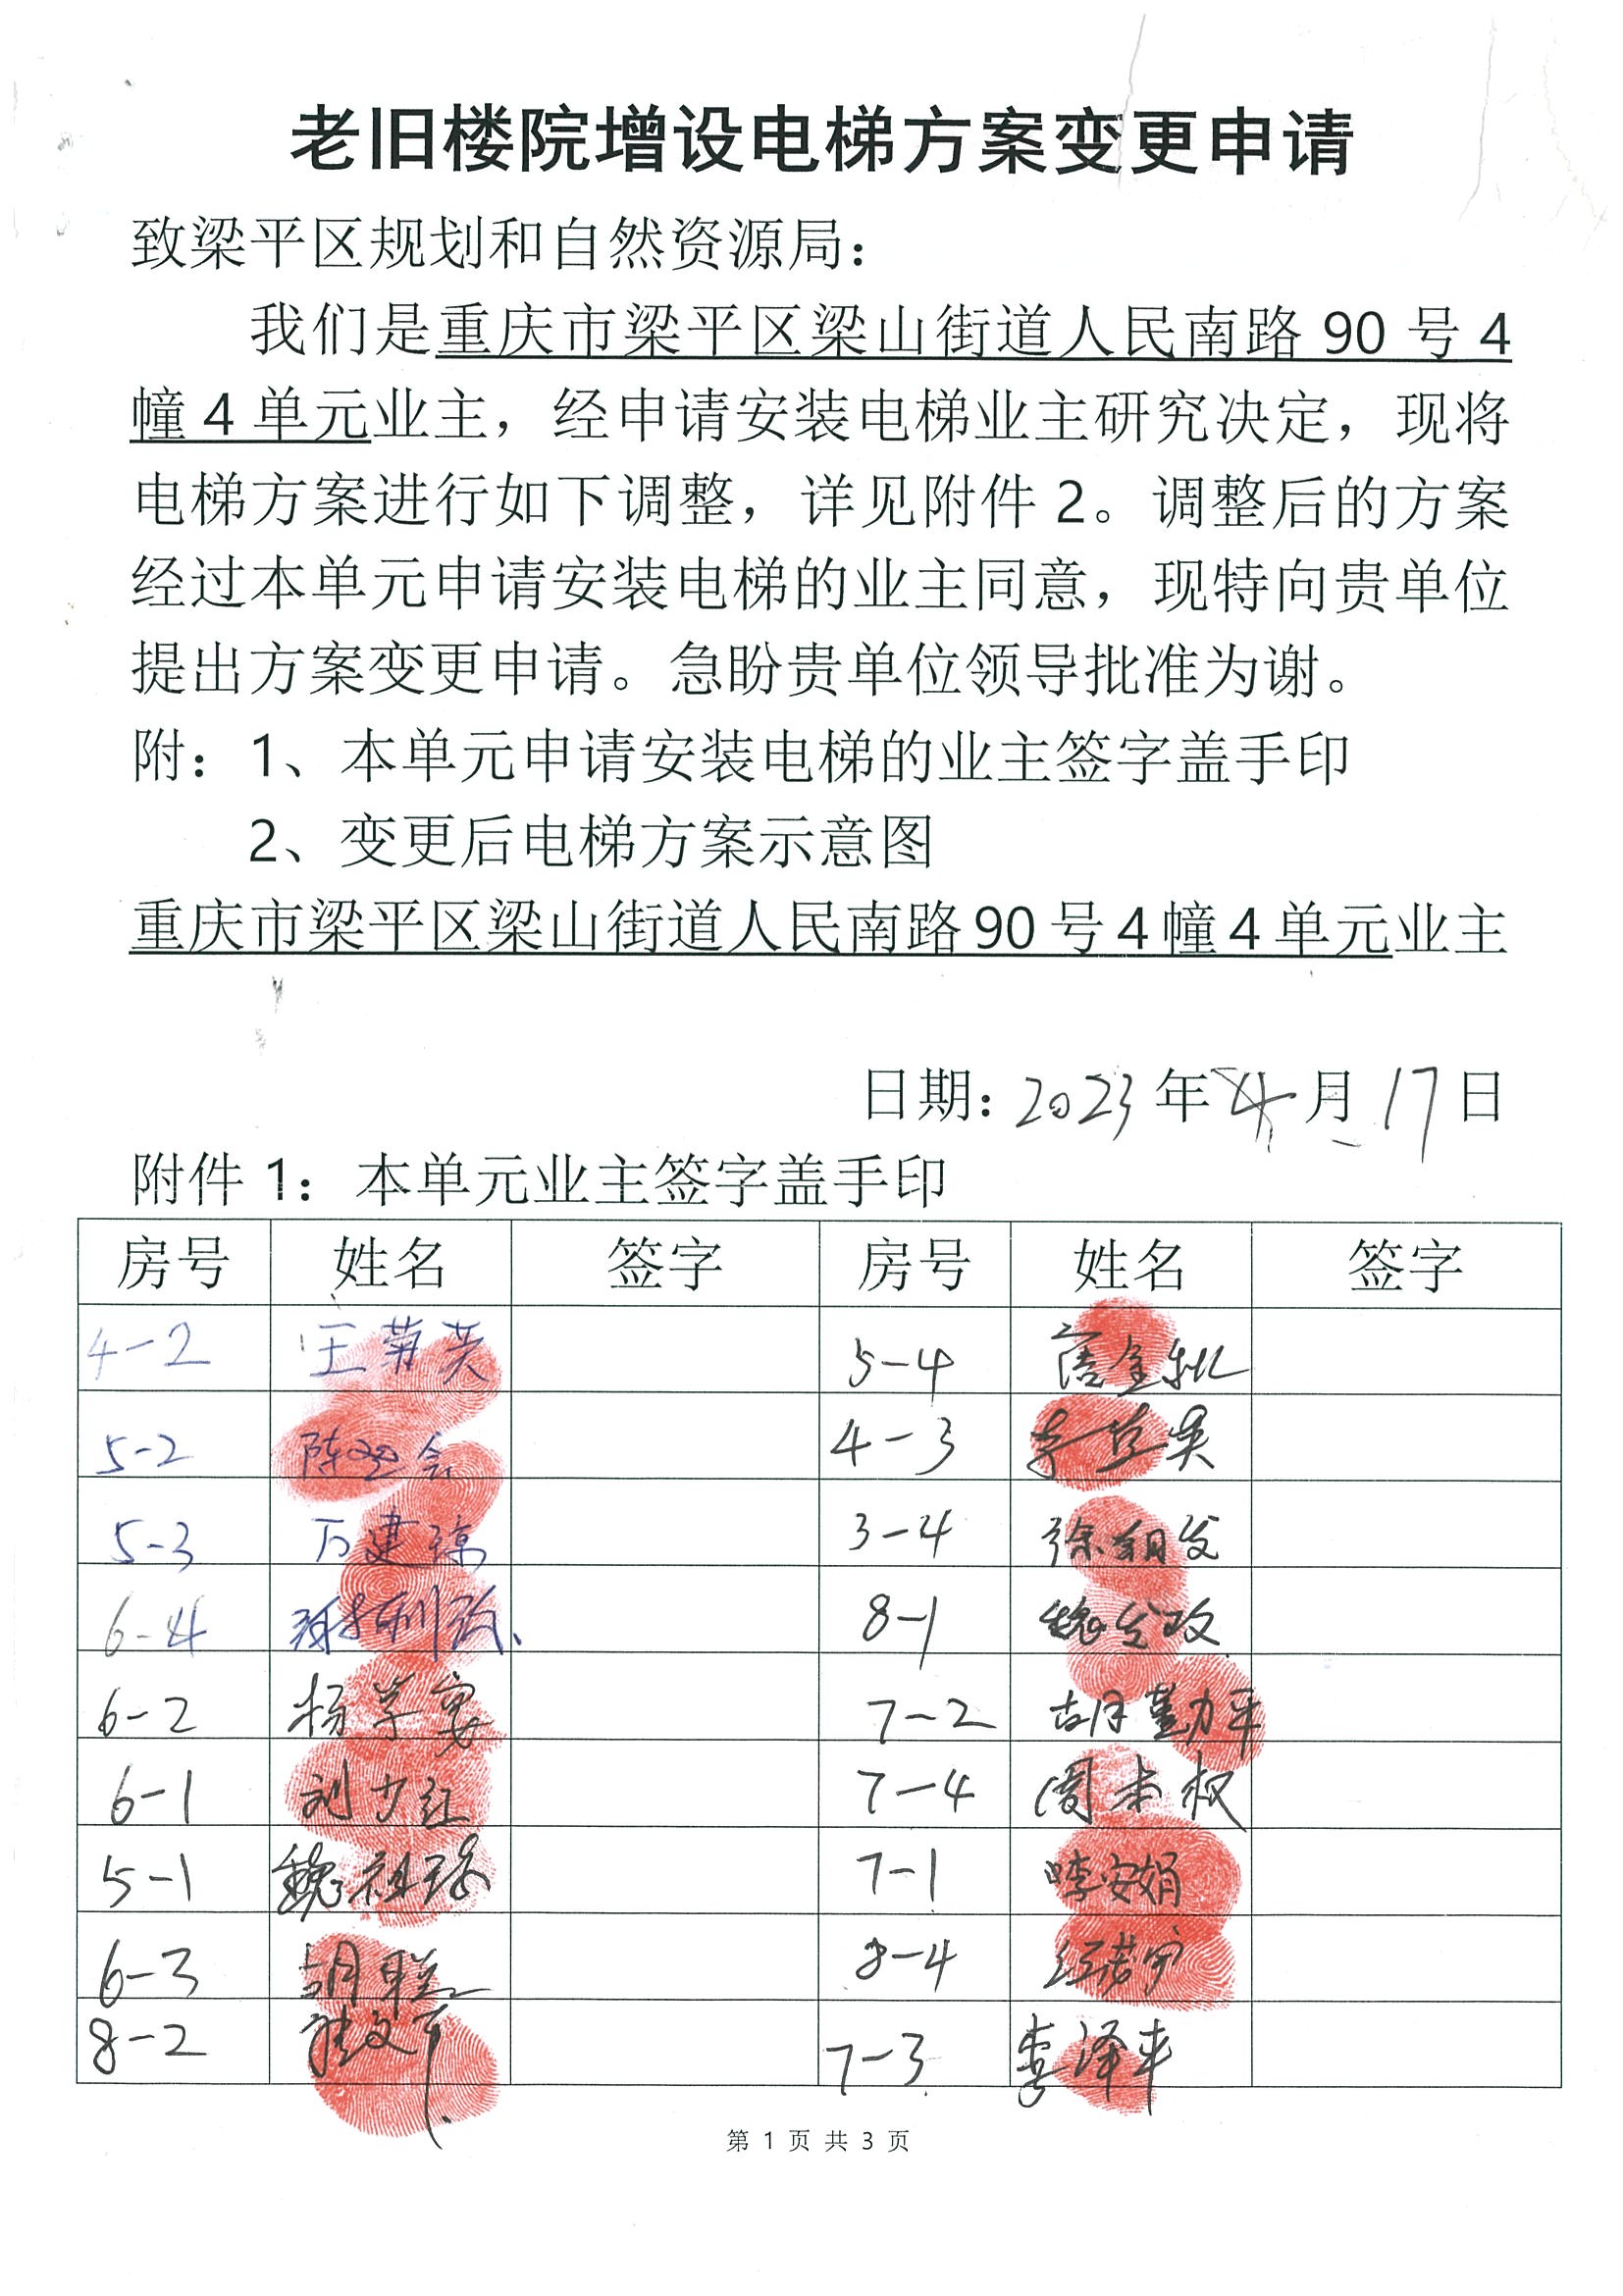 老旧楼院增设电梯方案变更申请
致梁平区规划和自然资源局：
我们是重庆市梁平区梁山街道人民南路 90 号 4
幢 4 单元业主，经申请安装电梯业主研究决定，现将
电梯方案进行如下调整，详见附件 2。调整后的方案
经过本单元申请安装电梯的业主同意，现特向贵单位
提出方案变更申请。急盼贵单位领导批准为谢。
附：1、本单元申请安装电梯的业主签字盖手印
2、变更后电梯方案示意图
重庆市梁平区梁山街道人民南路 90 号 4 幢 4 单元业主
日期：2023 年 4 月 17 日
附件 1：本单元业主签字盖手印
房号 姓名 签字 房号 姓名 签字
4-2 王菊英 5-4
5-2 4-3
5-3 万建琼 3-4 徐朝发
6-4 8-1
6-2 7-2 胡勤平
6-1 刘少红 7-4 周本权
5-1 魏祖珍 7-1
6-3 胡联 8-4
8-2 7-3 李泽平
第 1 页 共 3 页